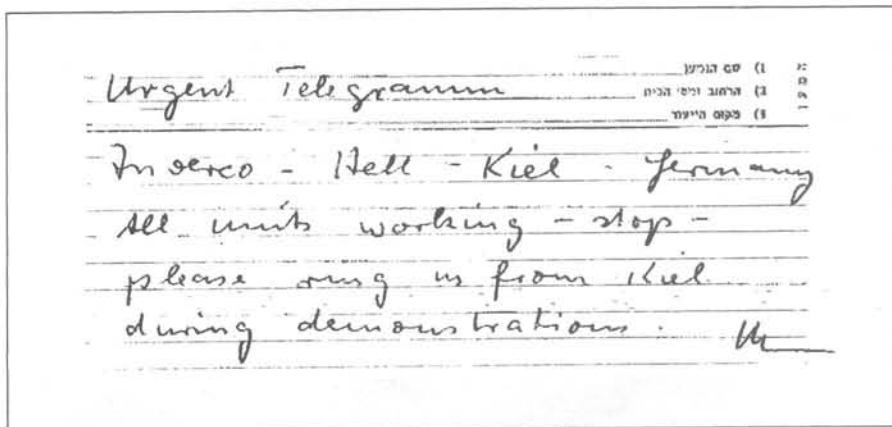 Urgent Telegramm
1) שם הנמען
2) הרחוב ומס׳ הבית
3) מקום הייעוד
Inderco - Hell - Kiel - Germany
All units working - stop -
please ring us from Kiel
during demonstrations.